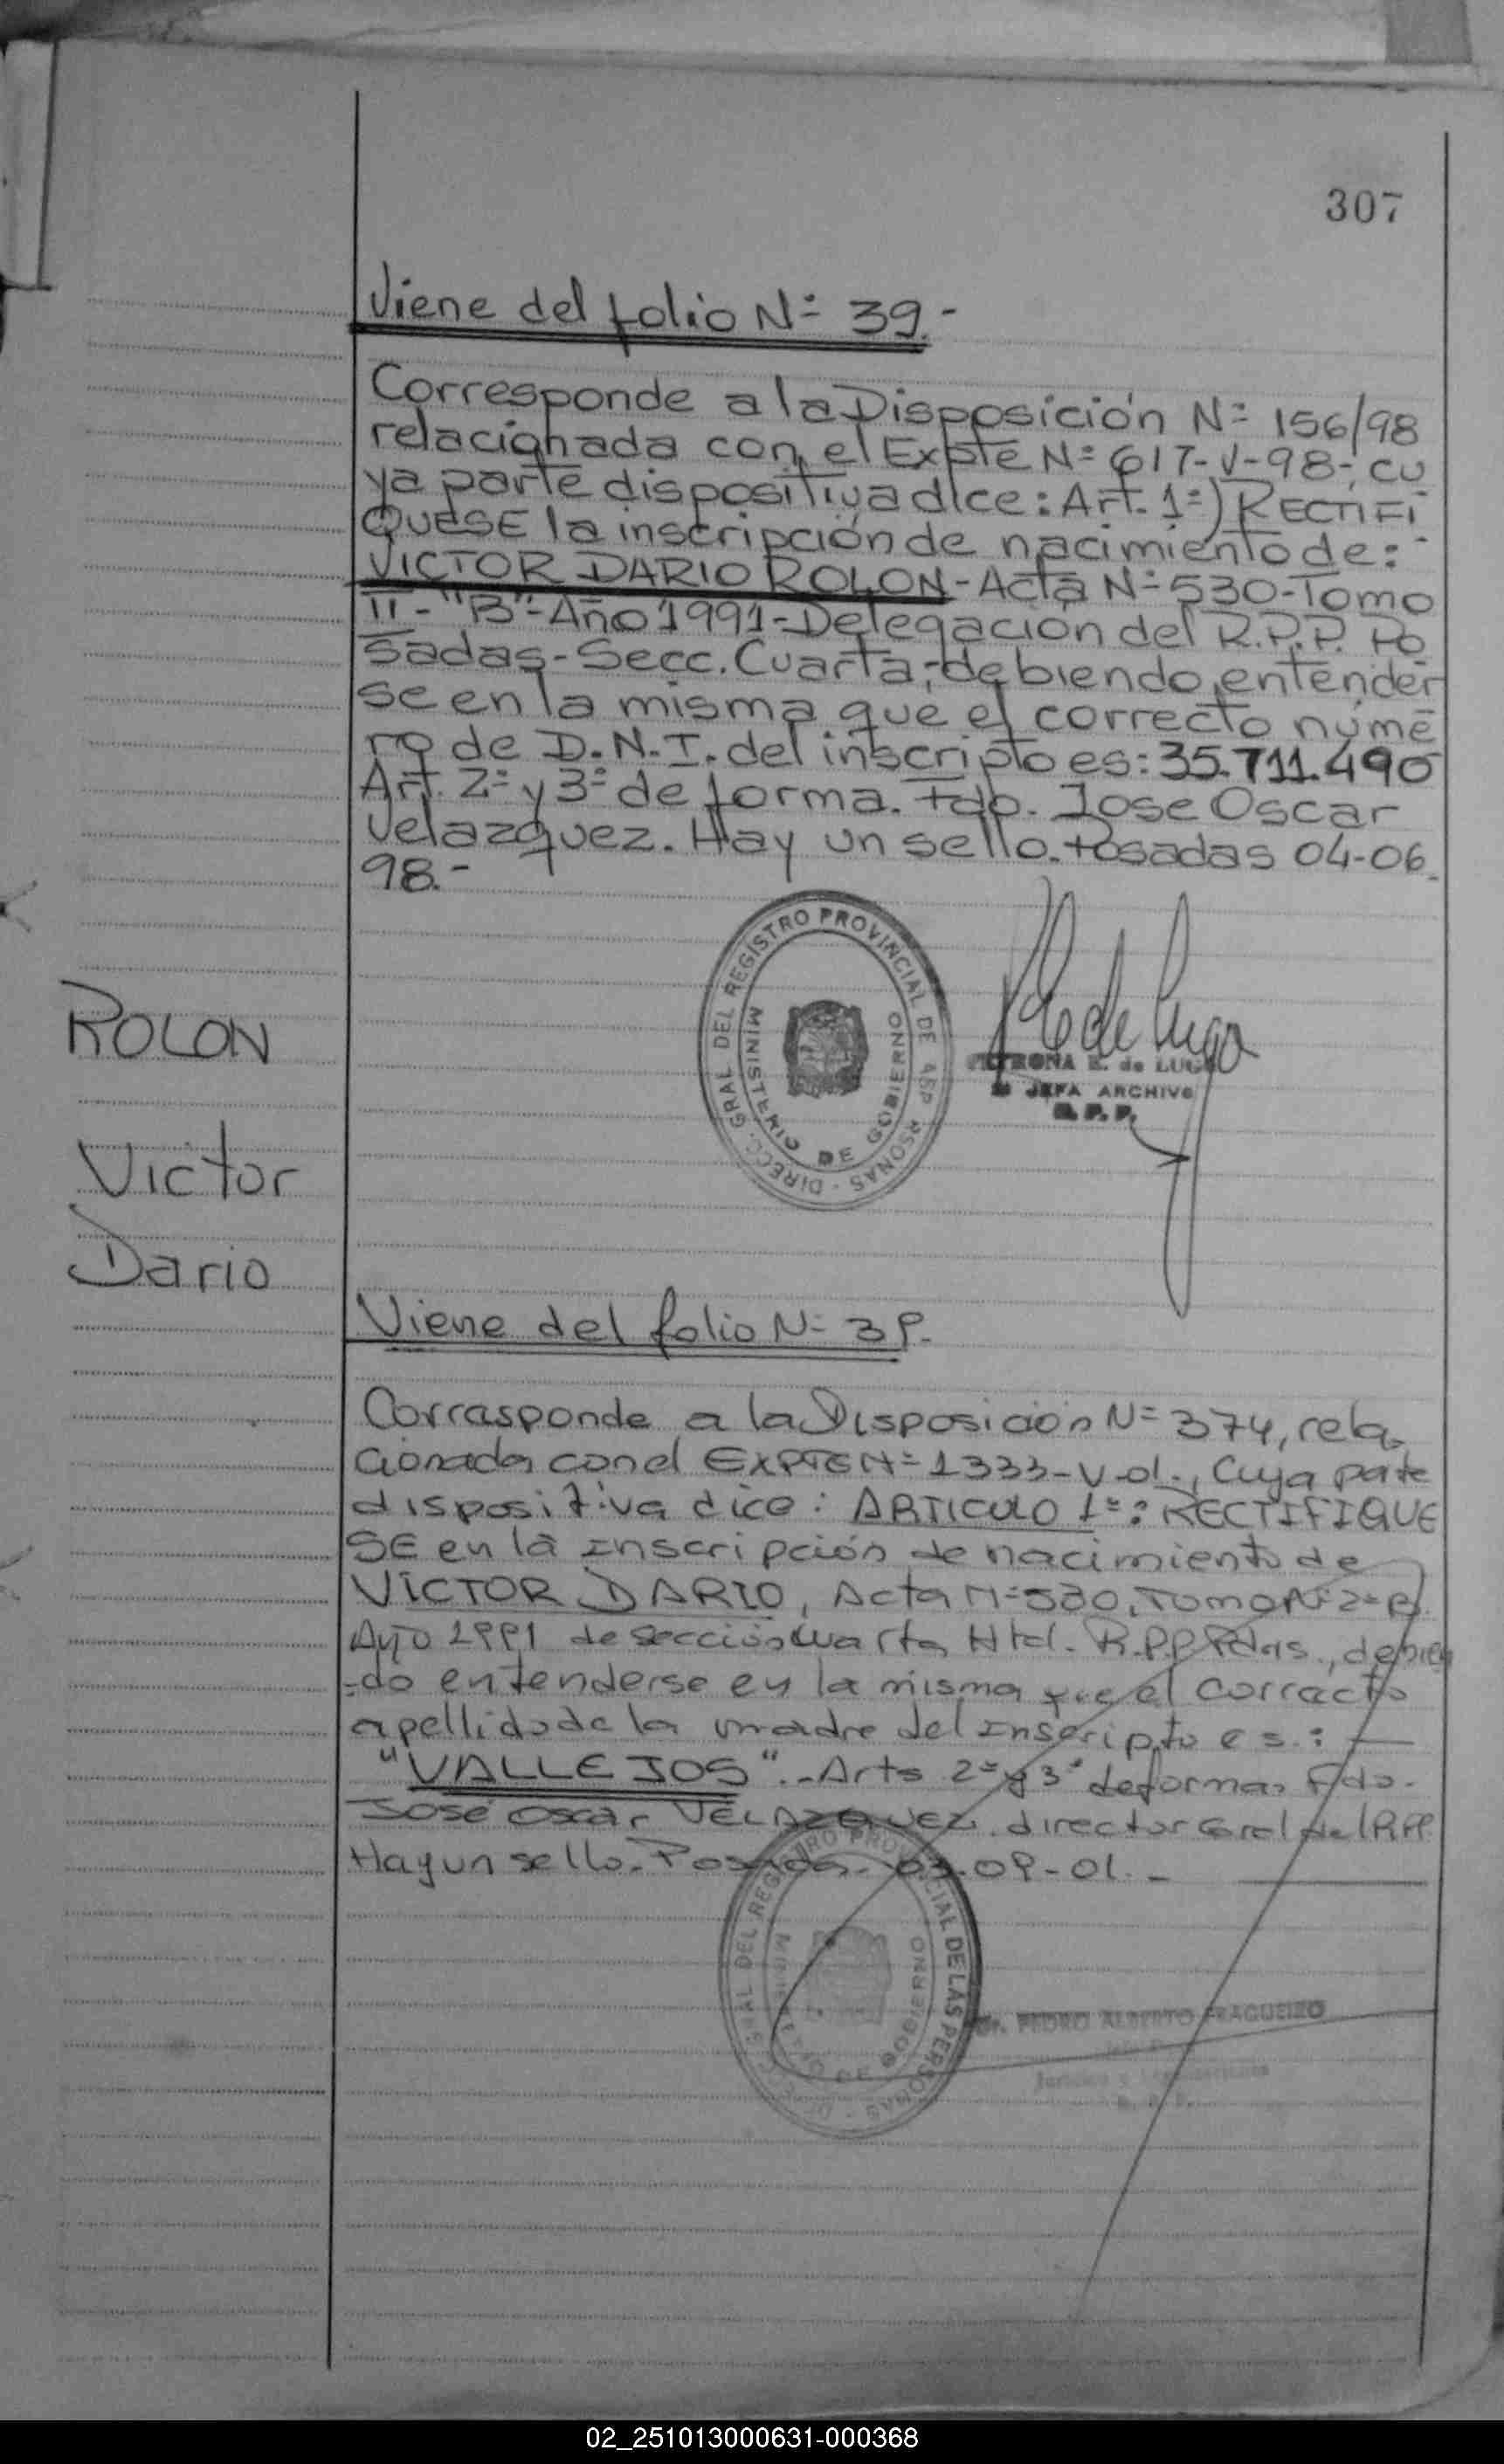 307
Viene del folio Nº 39.-
Corresponde a la Disposición Nº 156/98
relacionada con el Expte Nº 617-V-98-, cu
ya parte dispositiva dice: Art. 1º) RECTIFI
QUESE la inscripción de nacimiento de:-
VICTOR DARIO ROLON-Acta Nº 530-Tomo
II-"B"-Año 1991-Delegación del R.P.P. Po
sadas-Secc. Cuarta,-debiendo entender
se en la misma que el correcto núme
ro de D.N.I. del inscripto es: 35.711.490
Art. 2º y 3º de forma. Fdo. Jose Oscar
Velazquez. Hay un sello. Posadas 04-06
98.-
DIRECC. GRAL DEL REGISTRO PROVINCIAL DE PERSONAS
MINISTERIO DE GOBIERNO
PETRONA E. de LUGO
JEFA ARCHIVO
R. P. P.
ROLON
Victor
Dario
Viene del folio Nº 39.
Corresponde a la Disposición Nº 374, rela
cionada con el EXPTE Nº 1333-V-01., Cuya parte
dispositiva dice: ARTICULO 1º: RECTIFIQUE
SE en la inscripción de nacimiento de
VICTOR DARIO, Acta Nº 530, Tomo Nº 2º B
Año 1991 de sección cuarta Htal. R.P.P Pdas., debien
-do entenderse en la misma que el correcto
apellido de la madre del inscripto es.: —
"VALLEJOS".-Arts 2º y 3º de forma, Fdo.
José Oscar VELAZQUEZ. director Gral del R.P.P.
Hay un sello. Posadas. 03-09-01.-
DIRECC. GRAL DEL REGISTRO PROVINCIAL DE LAS PERSONAS
MINISTERIO DE GOBIERNO
Dr. PEDRO ALBERTO FRAGUEIRO
R. P. P.
02_251013000631-000368